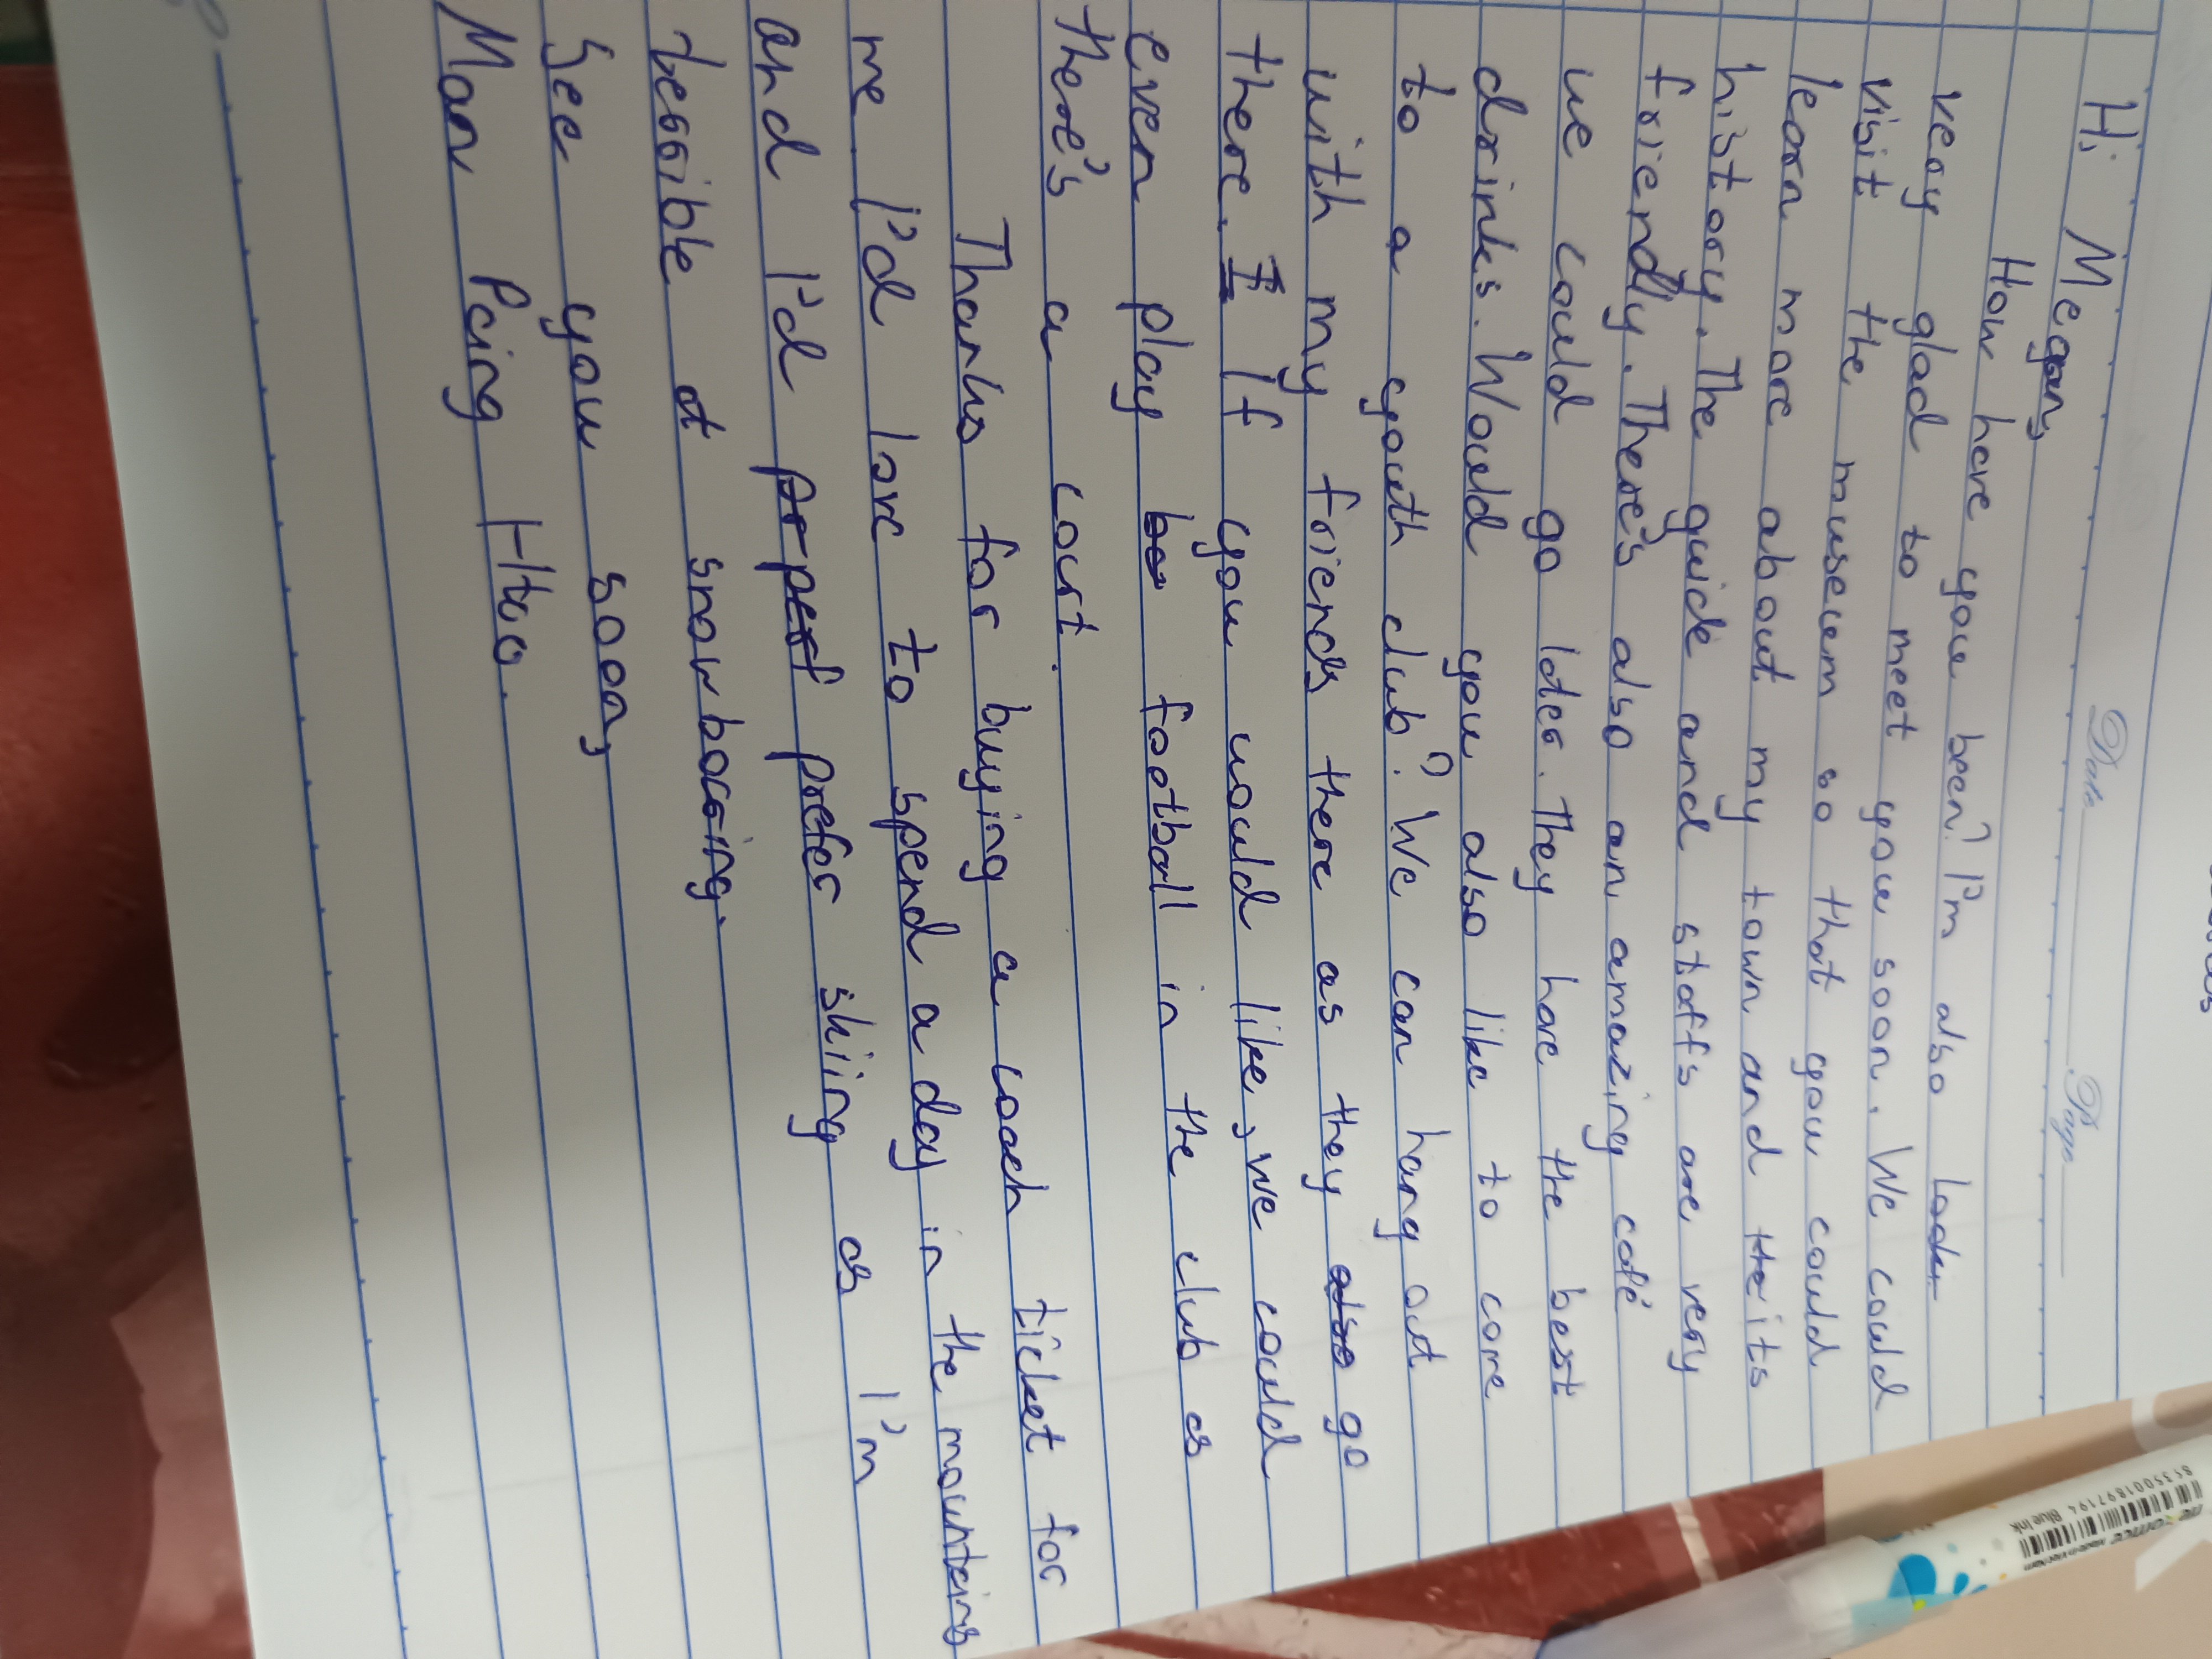 Date
Page
Hi Megan,
How have you been? I'm also
very glad to meet you soon. We could
visit the museum so that you could
learn more about my town and its
history. The guide and staffs are very
friendly. There's also an amazing café
we could go later. They have the best
drinks. Would you also like to come
to a youth club? We can hang out
with my friends there as they go
there. If you would like, we could
even play football in the club as
there's a court.
Thanks for buying a coach ticket for
me I'd love to spend a day in the mountains
and I'd prefer skiing as I'm
terrible at snowboarding.
See you soon,
Man Paing Htoo.
8935001897194 Blue Ink